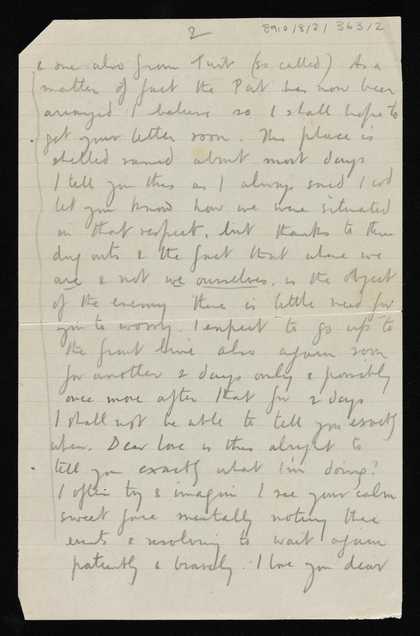 2 8910/8/2/363/2
& one also from Turt (so called) As a
matter of fact the Post has now been
arranged I believe so I shall hope to
get your letter soon. This place is
shelled round about most days
I tell you this as I always said I wd
let you know how we were situated
in that respect, but thanks to the
dug outs & the fact that where we
are & not we ourselves, is the object
of the enemy there is little need for
you to worry. I expect to go up to
the front line also again soon
for another 2 days only & possibly
once more after that for 2 days
I shall not be able to tell you exactly
when. Dear Love is this alright to
tell you exactly what I'm doing?
I often try & imagine I see your calm
sweet face mentally noting these
events & resolving to wait again
patiently & bravely. I love you dear